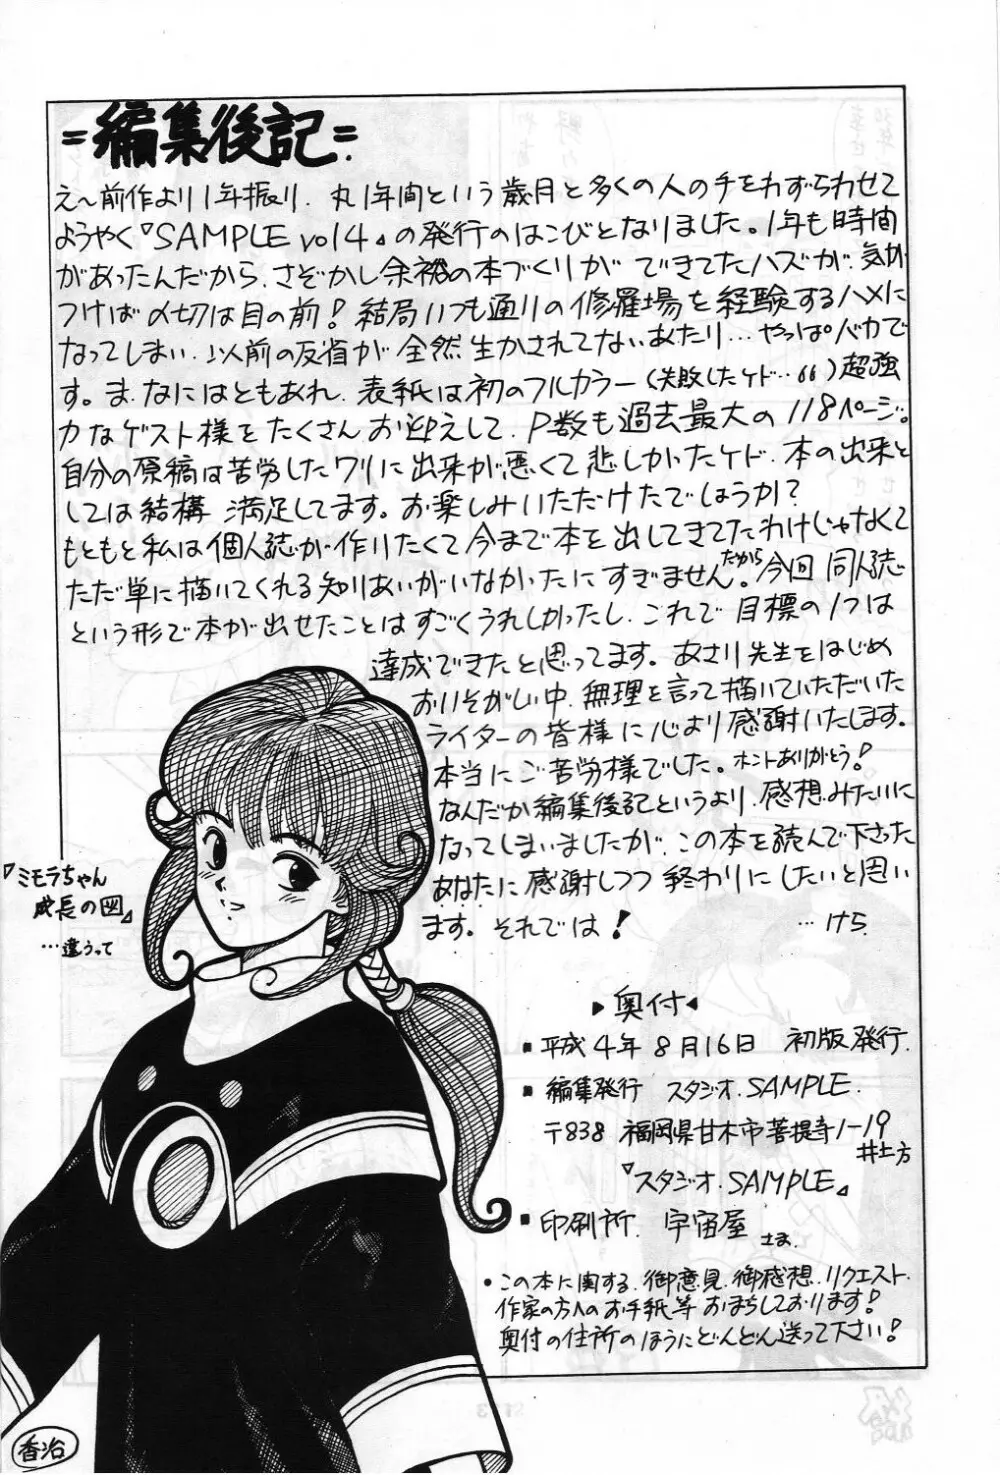 =編集後記=
え～前作より1年振り、丸1年間という歳月と多くの人の手をわずらわせて
ようやく『SAMPLE vol4』の発行のはこびとなりました。1年も時間
があったんだから、さぞかし余裕の本づくりができてたハズが、気が
つけば〆切は目の前！結局いつも通りの修羅場を経験するハメに
なってしまい、以前の反省が全然生かされてないあたり…やっぱバカで
す。ま、なにはともあれ、表紙は初のフルカラー（失敗したケド…66）超強
力なゲスト様をたくさんお迎えして、P数も過去最大の118ページ。
自分の原稿は苦労したワリに出来が悪くて悲しかったケド、本の出来と
しては結構満足してます。お楽しみいただけたでしょうか？
もともと私は個人誌が作りたくて今まで本を出してきてたわけじゃなくて
ただ単に描いてくれる知りあいがいなかったにすぎません。だから今回同人誌
という形で本が出せたことはすごくうれしかったし、これで目標の1つは
達成できたと思ってます。あさり先生をはじめ
おいそがしい中、無理を言って描いていただいた
ライターの皆様に心より感謝いたします。
本当にご苦労様でした。ホントありがとう！
なんだか編集後記というより、感想みたいに
なってしまいましたが、この本を読んで下さった
あなたに感謝しつつ終わりにしたいと思い
ます。それでは！ …けら
『ミモラちゃん
成長の図』
…違うって
▶奥付◀
■平成4年8月16日 初版発行.
■編集発行 スタジオ.SAMPLE.
〒838 福岡県甘木市菩提寺1-19
井土方
『スタジオ.SAMPLE』
■印刷所. 宇宙屋 さま.
・この本に関する、御意見、御感想、リクエスト、
作家の方へのお手紙等おまちしております！
奥付の住所のほうにどんどん送って下さい！
香治